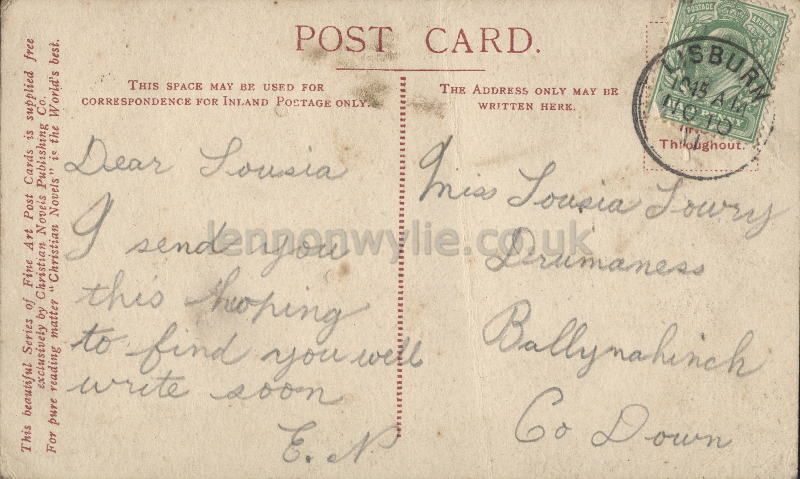 POST CARD.
THIS SPACE MAY BE USED FOR
CORRESPONDENCE FOR INLAND POSTAGE ONLY.
THE ADDRESS ONLY MAY BE
WRITTEN HERE.
This beautiful Series of Fine Art Post Cards is supplied free
exclusively by Christian Novels Publishing Co.
For pure reading matter "Christian Novels" is the World's best.
POSTAGE
LISBURN
NO 10
11
Throughout.
Dear Lousia
I send you
this hoping
to find you well
write soon
E. N
Miss Lousia Lowry
Drumaness
Ballynahinch
Co Down
lennonwylie.co.uk